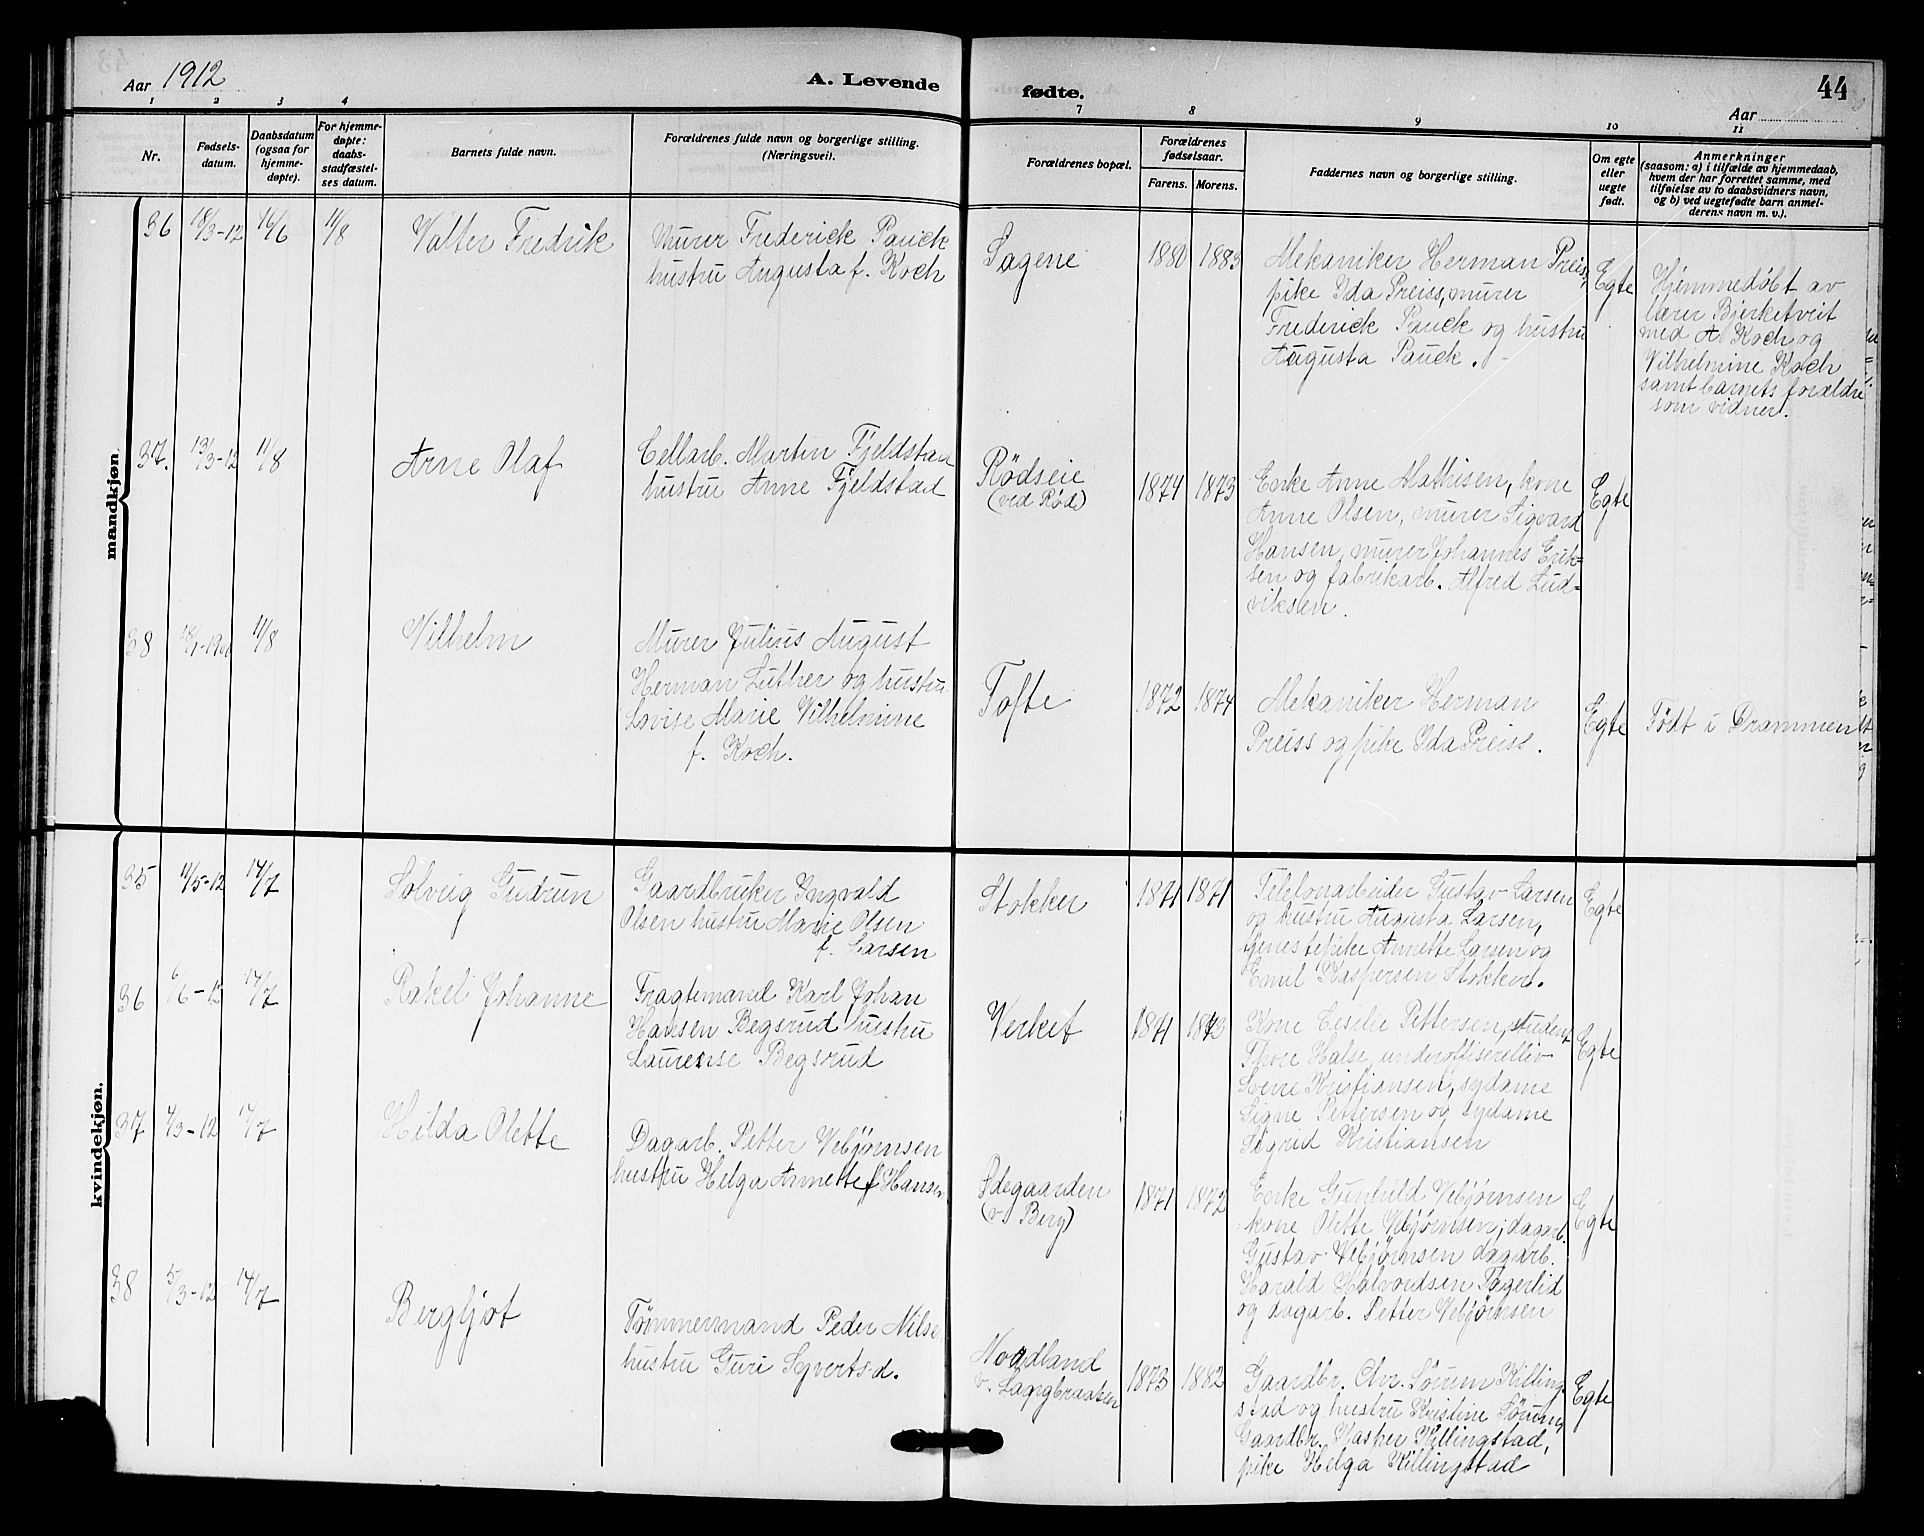 Aar 1912
A. Levende
fødte.
Aar
44
1 2 3 4 7 8 9 10 11
Nr.
Fødsels-
datum.
Daabsdatum
(ogsaa for
hjemme-
døpte).
For hjemme-
døpte:
daabs-
stadfæstel-
ses datum.
Barnets fulde navn.
Forældrenes fulde navn og borgerlige stilling.
(Næringsvei).
Forældrenes bopæl.
Forældrenes
fødselsaar.
Farens. Morens.
Faddernes navn og borgerlige stilling.
Om egte
eller
uegte
født.
Anmerkninger
(saasom: a) i tilfælde av hjemmedaab,
hvem der har forrettet samme, med
tilføielse av to daabsvidners navn,
og b) ved uegtefødte barn anmel-
derens navn m. v.).
mandkjøn
36
18/3-12
16/6
11/8
Valter Fredrik
Murer Frederick Pauck
hustru Augusta f. Koch
Sagene
1880
1883
Mekaniker Herman Preiss,
pike Ida Preiss, murer
Frederick Pauck og hustru
Augusta Pauck.
Egte
Hjemmedøbt av
lærer Bjerketveit
med A Koch og
Vilhelmine Koch
samt barnets forældre
som vidner.
37.
13/3-12
11/8
Arne Olaf
Cellarb. Martin Fjeldstad
hustru Anne Fjeldstad
Rödseie
(ved Röd)
1874
1873
Enke Anne Mathisen, kone
Anne Olsen, murer Sigvard
Hansen, murer Johannes Erik=
sen og fabrikarb. Alfred Lud=
viksen.
Egte
38
11/8
Vilhelm
Murer Julius August
Herman Luther og hustru
Lovise Marie Vilhelmine
f. Koch.
Tofte
1872
1874
Mekaniker Herman
Preiss og pike Ida Preiss.
Egte
Født i Drammen
kvindekjøn.
35
11/5-12
14/7
Solveig Gudrun
Gaardbruker Ingvald
Olsen hustru Marie Olsen
f. Larsen
Stokker
1871
1871
Telefonarbeider Gustav Larsen
og hustru Augusta Larsen,
tjenestepike Annette Larsen og
Emil Kaspersen Stokker.
Egte
36
6/6-12
14/7
Rakel Johanne
Fragtemand Karl Johan
Hansen Begsrud hustru
Laurense Begsrud
Verket
1871
1873
Kone Cesilie Pettersen, student
Thore Halse, underoffiserellev
Kristiansen, sydame
Signe Pettersen og sydame
Sigrid Kristiansen
Egte
37
4/3-12
14/7
Hilda Olette
Dagarb. Petter Vebjørnsen
hustru Helga Annette f Hansen
Ødegaarden
(v. Berg)
1871
1872
Enke Gunhild Vebjørnsen
kone Olette Vebjørnsen, dagarb.
Gustav Vebjørnsen dagarb.
Harald Halvordsen Fagerlid
og dagarb. Petter Vebjørnsen
Egte
38
5/3-12
14/7
Bergljot
Tömmermand Peder Nilsen
hustru Guri Sjverts-d.
Nordland
1873
1882
Gaardbr. Chr. Sörum Killing-
stad og hustru Kristine Sörum,
Gaardbr. Kasper Killingstad,
pike Helga Killingstad
Egte